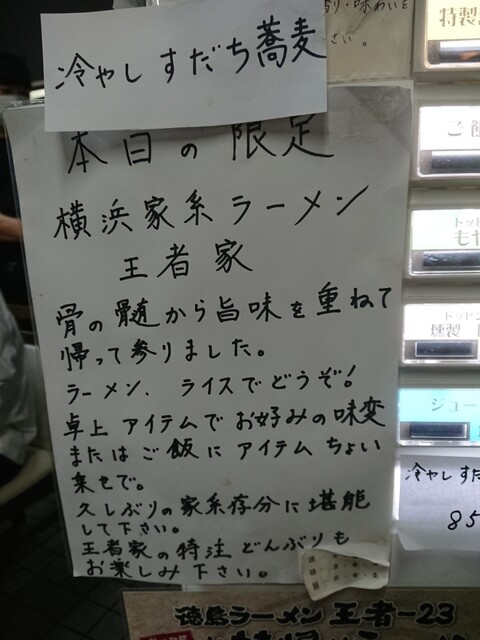 冷やし すだち蕎麦
本日の限定
横浜家系ラーメン
王者家
骨の髄から旨味を重ねて
帰って参りました。
ラーメン、ライスでどうぞ!
卓上アイテムでお好みの味変
またはご飯にアイテムちょい
乗せで。
久しぶりの家系存分に堪能
して下さい。
王者家の特注どんぶりも
お楽しみ下さい。
さい。
特製
ご
トッピ
もや
トッピン
燻製
ジュー
冷やしすだ
85
徳島ラーメン 王者-23